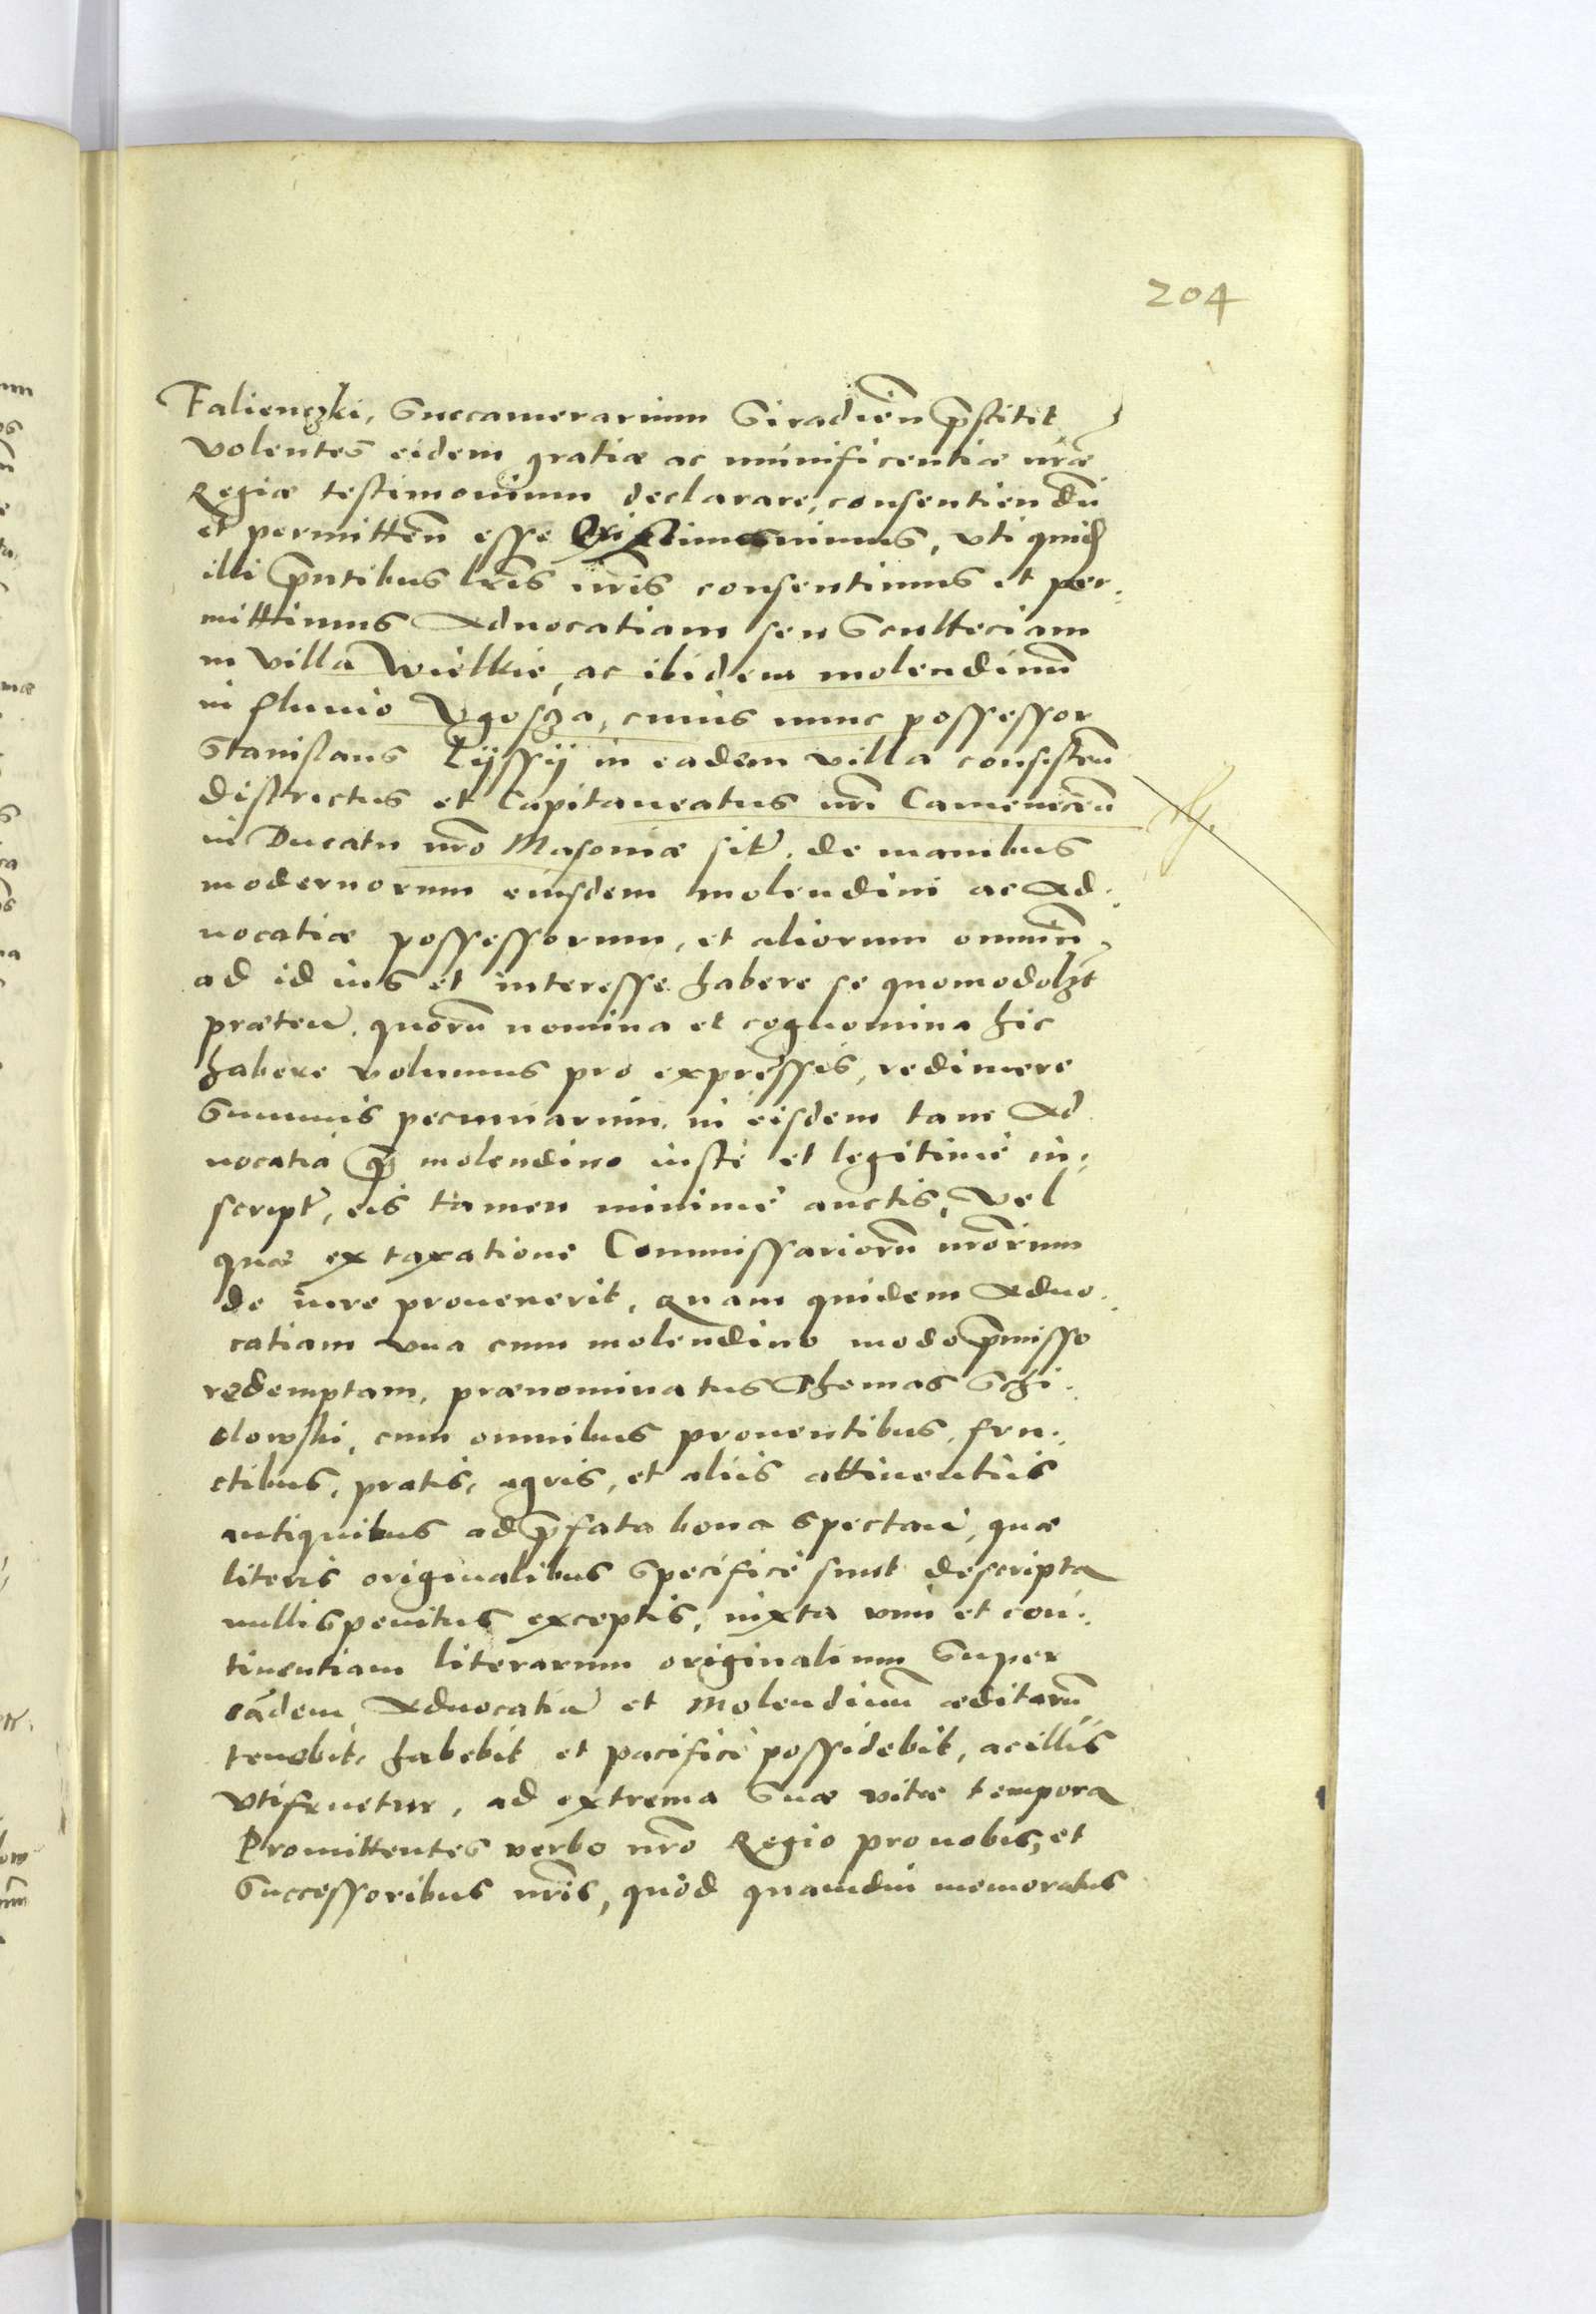 204
Falienczki, Succamerarium Siradień p̄stitit
volentes eidem gratiæ ac munificentiæ nr̄æ
Regiæ testimonium declarare, consentiendū
et permitteñ esse uti quidē
illi p̄ntibus lr̄is nr̄is consentimus et per:
mittimus Aduocatiam seu Scultetiam
in villa Wielkie, ac ibidem molendinū
in fluuio Vgoscza, cuius nunc possessor
Stanislaus Lyssy in eadem villa consisteñ
districtus et Capitaneatus nr̄i Cameneceñ
in Ducatu nr̄o Masoniæ sit̄. de manibus
modernorum eiusdem molendini ac Ad:
uocatiæ possessorum, et aliorum omniū,
ad id ius et interesse habere se quomodolȝt
præteñ. quorū nomina et cognomina hic
habere volumus pro expressis, redimere
Summis pecuniarum in eisdem tam Ad
uocatia q̄ȝ molendino iustè et legitimè in:
script̄, eis tamen minimè auctis, Vel
quæ ex taxatione Commissariorū nr̄orum
de iure prouenerit, Quam quidem Aduo:
catiam vna cum molendino modo p̄misso
redemptam, prænominatus Thomas Schi:
dlowski, cum omnibus prouentibus, fru:
ctibus, pratis, agris, et aliis attinentiis
antiquibus ad p̄fata bona spectań, quæ
literis originalibus Specificè sunt descripta
nullis penitus exceptis, iuxta vim et con:
tinentiam literarum originalium Super
eādem Aduocatiā et Molendinū æditarū
tenebit, habebit et pacificè possidebit, ac illis
vtifruetur, ad extrema Suæ vitæ tempora
Promittentes verbo nr̄o Regio pro nobis, et
Successoribus nr̄is, quòd quamdiu memoratus